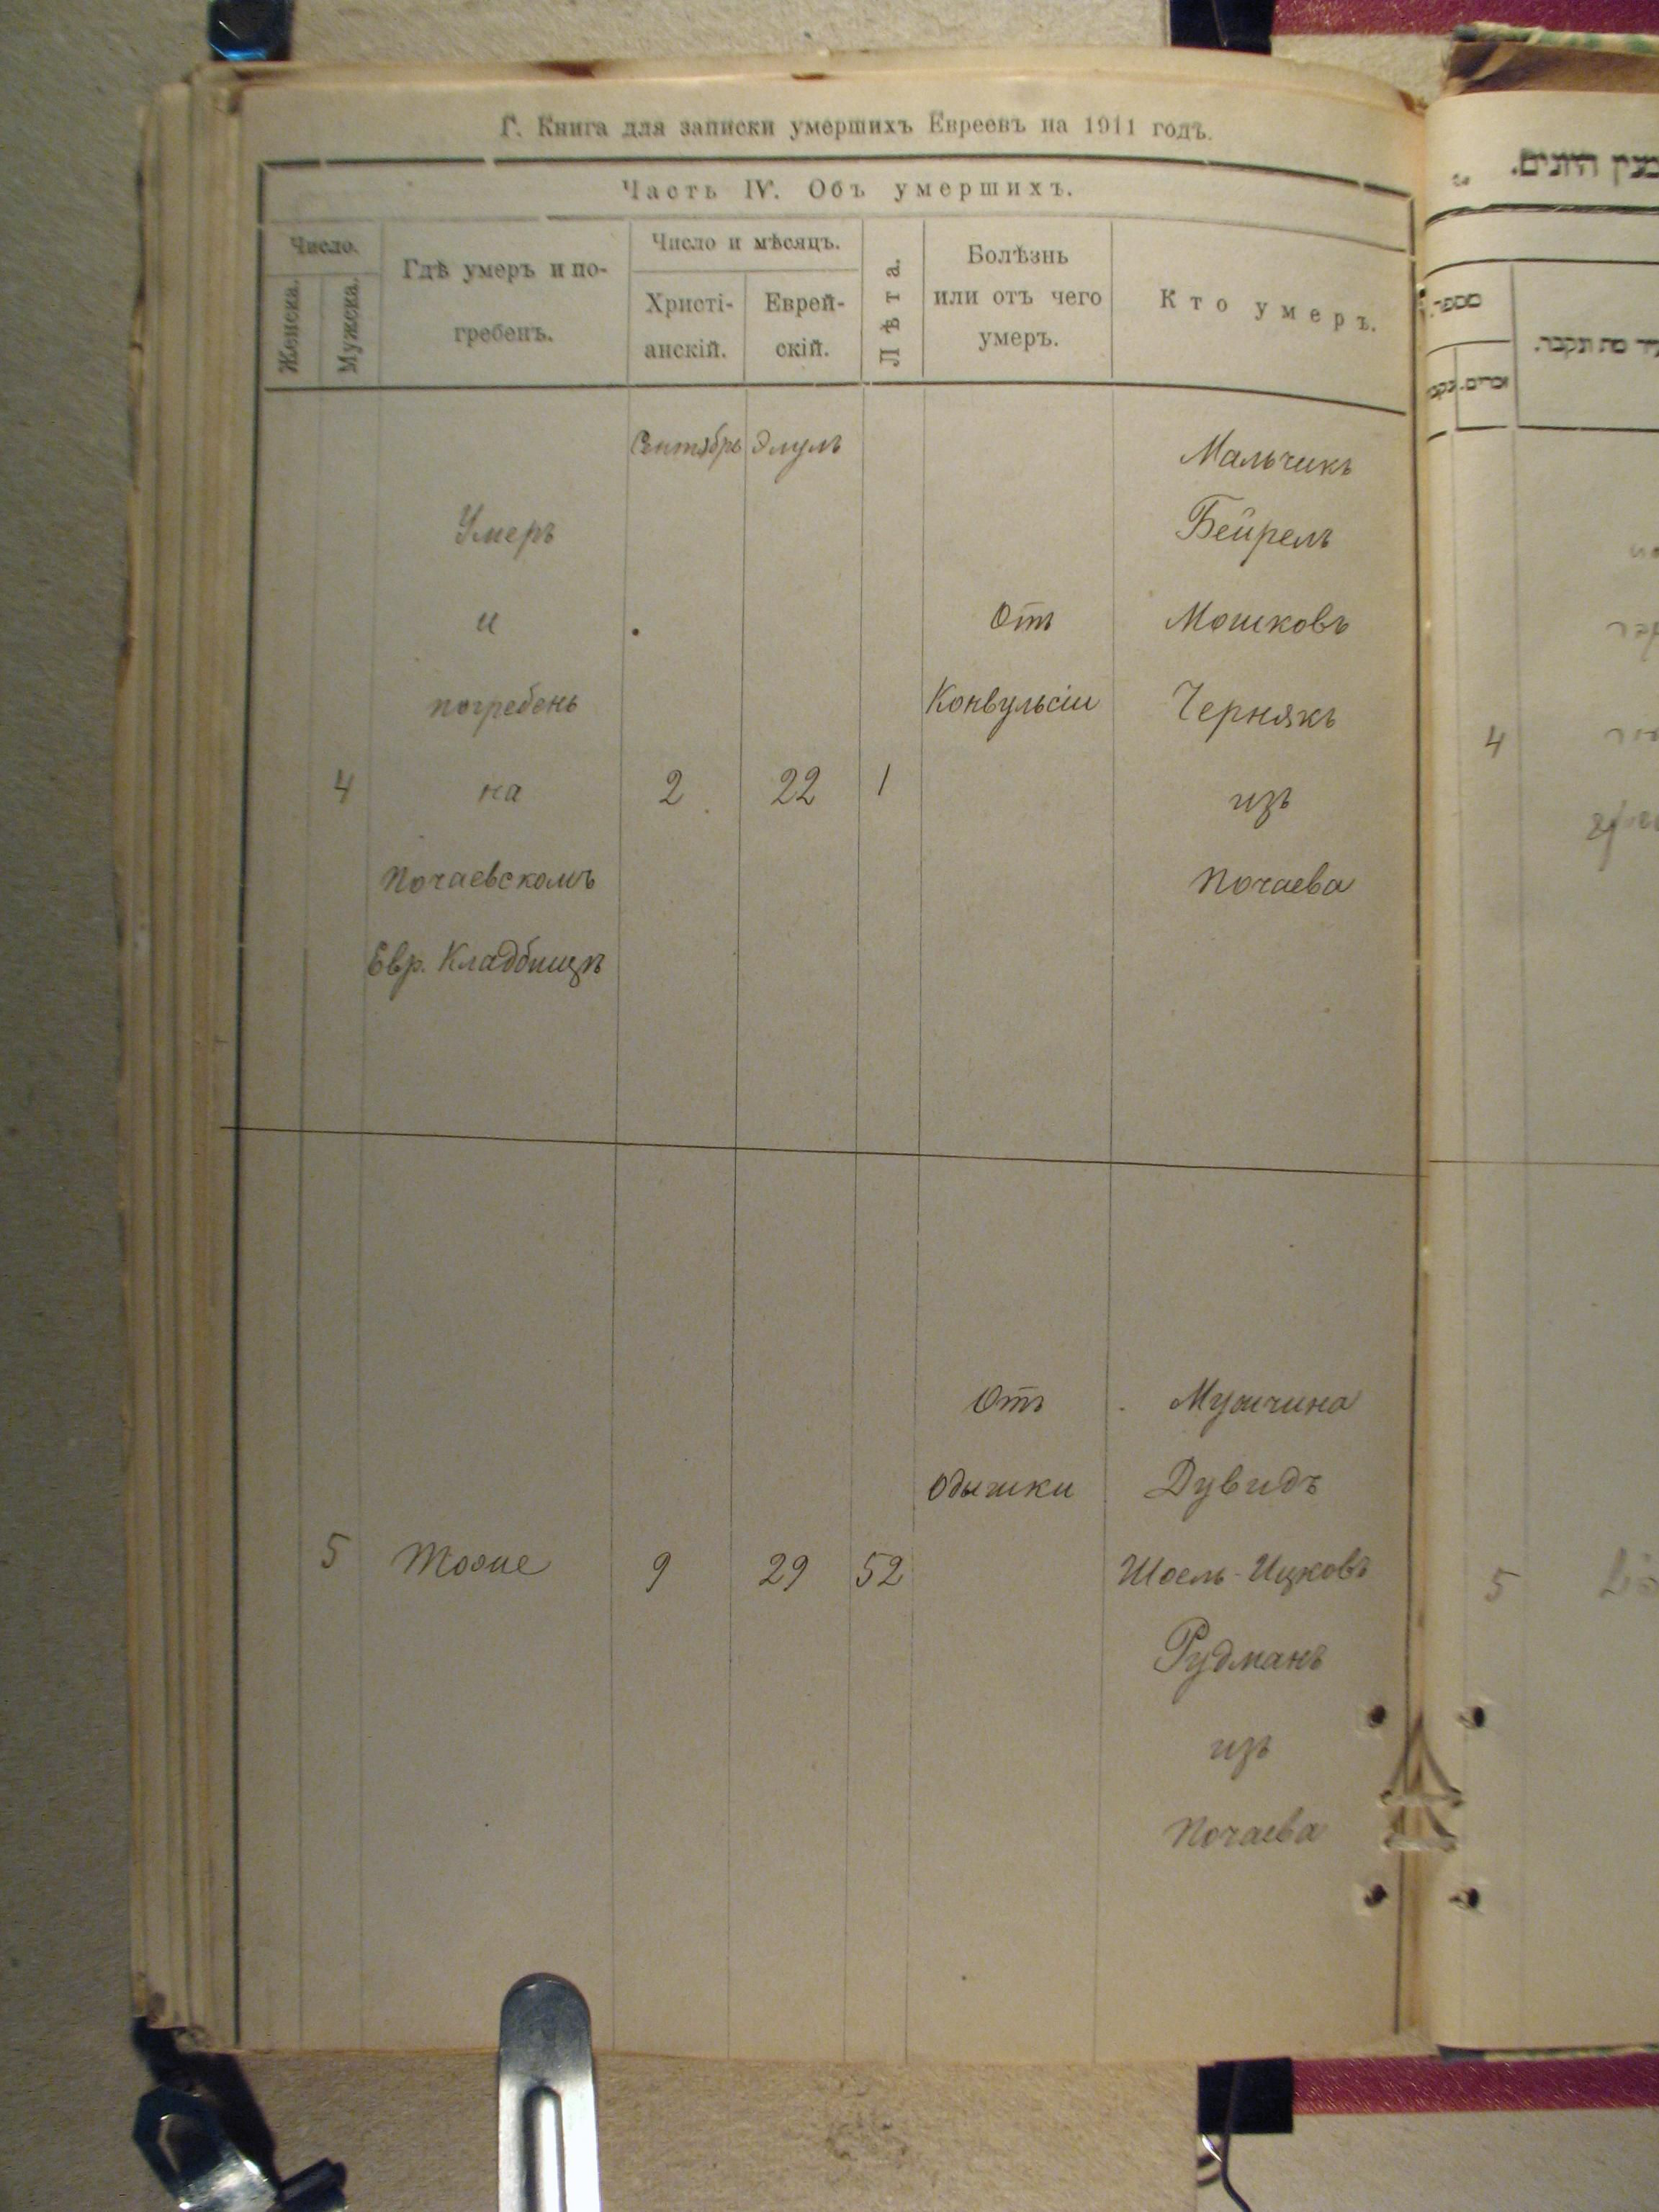 Г. Книга для записки умершихъ Евреевъ на 1911 годъ.
Часть IV. Объ умершихъ.
Число.
Женска.
Мужска.
Гдѣ умеръ и по-
гребенъ.
Число и мѣсяцъ.
Христі-
анскій.
Еврей-
скій.
Лѣта.
Болѣзнь
или отъ чего
умеръ.
Кто умеръ.
Сентябрь Элулъ Мальчикъ
Умеръ Бейрелъ
и Отъ Мошковъ
погребенъ Конвульсіи Чернякъ
4 на 2 22 1 изъ
Почаевскомъ Почаева
Евр. Кладбищѣ
Отъ Мужчина
Одышки Дувидъ
5 Тоже 9 29 52 Шоель-Ицковъ
Рудманъ
изъ
Почаева
מספר.
זכרים.
מת ונקבר.
4
5